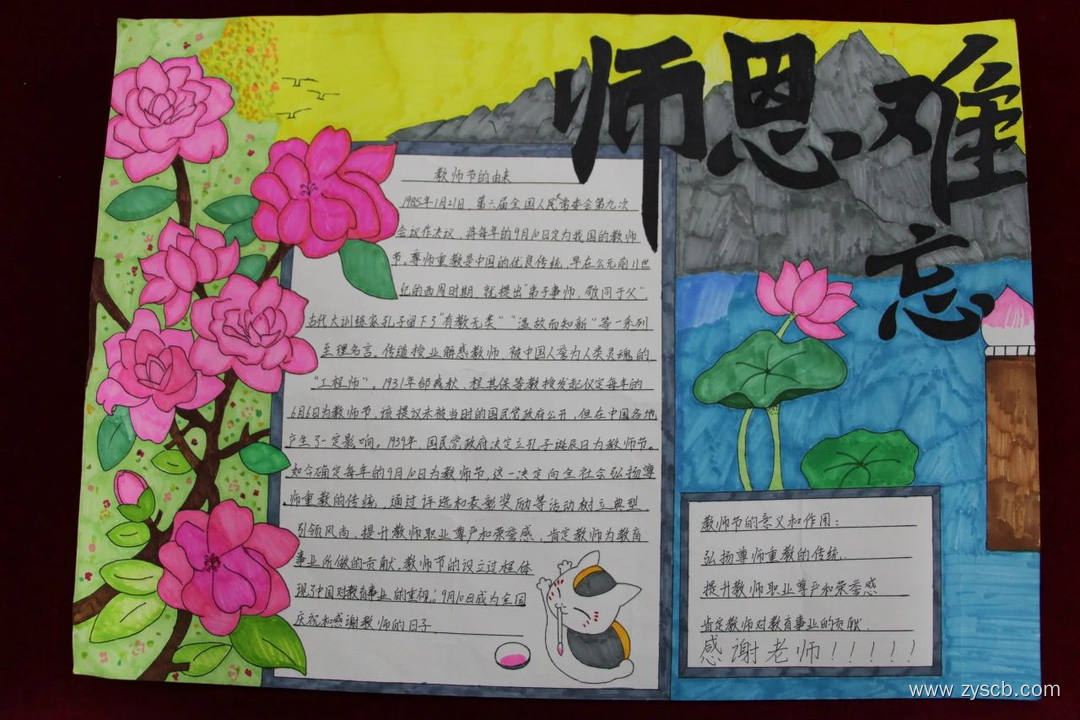 师恩难
忘
教师节的由来
1985年1月21日，第六届全国人民常委会第九次
会议作决议，将每年的9月10日定为我国的教师
节，尊师重教是中国的优良传统，早在公元前11世
纪的西周时期，就提出"弟子事师，敬同于父"
古代大训练家孔子留下了"有教无类""温故而知新"等一系列
至理名言。传道授业解惑教师，被中国人誉为人类灵魂的
"工程师"。1931年邰爽秋、程其保等教授发起仪定每年的
6月6日为教师节，该提议未被当时的国民党政府公开，但在中国各地
产生了一定影响。1939年，国民党政府决定立孔子诞辰日为教师节。
如今确定每年的9月10日为教师节，这一决定向全社会弘扬尊
师重教的传统，通过评选和表彰奖励等活动树立典型
引领风尚，提升教师职业尊严和荣誉感，肯定教师为教育
事业所做的贡献，教师节的设立过程体
现了中国对教育事业的重视。9月10日成为全国
庆祝和感谢教师的日子
教师节的意义和作用：
弘扬尊师重教的传统
提升教师职业尊严和荣誉感
肯定教师对教育事业的贡献
感谢老师！！！！！
www.zyscb.com